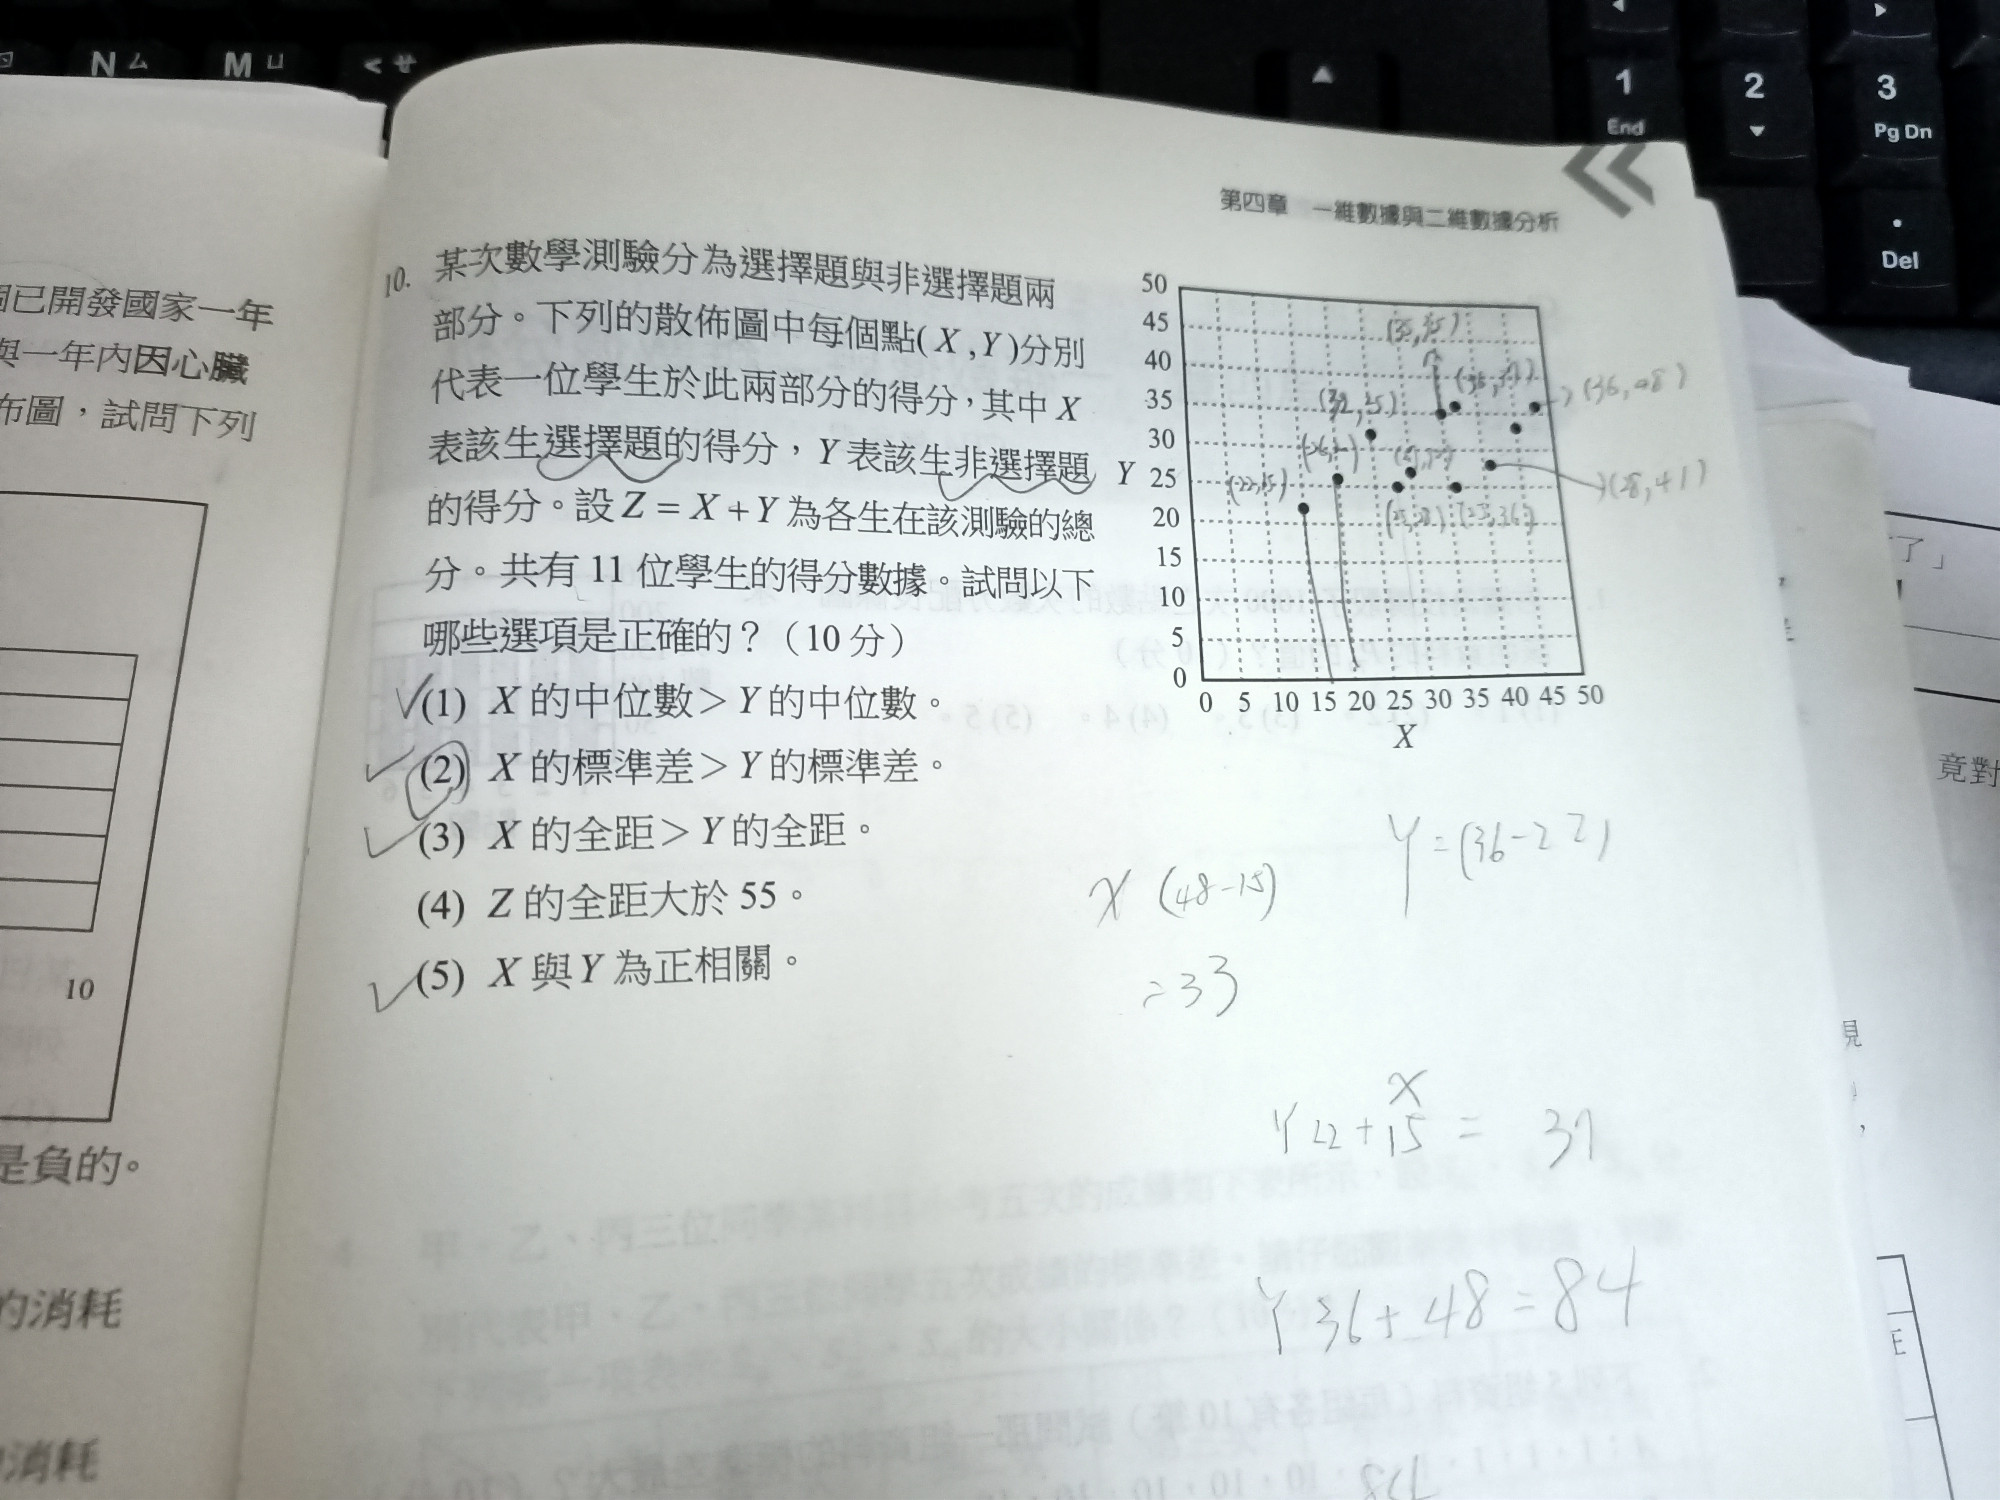 Nㄙ
Mㄩ
<ㄝ
1
End
2
3
Pg Dn
.
Del
第四章 一維數據與二維數據分析
10. 某次數學測驗分為選擇題與非選擇題兩
部分。下列的散佈圖中每個點(X,Y)分別
代表一位學生於此兩部分的得分,其中X
表該生選擇題的得分,Y表該生非選擇題
的得分。設Z=X+Y為各生在該測驗的總
分。共有11位學生的得分數據。試問以下
哪些選項是正確的?(10分)
(1) X的中位數>Y的中位數。
(2) X的標準差>Y的標準差。
(3) X的全距>Y的全距。
(4) Z的全距大於55。
(5) X與Y為正相關。
50
45
40
35
30
Y 25
20
15
10
5
0
0 5 10 15 20 25 30 35 40 45 50
X
(36,48)
(28,41)
(22,15)
Y=(36-22)
X (48-15)
=33
X
Y 22+15 = 37
Y 36+48=84
已開發國家一年
與一年內因心臟
布圖,試問下列
10
是負的。
的消耗
消耗
了」
竟對
見
E